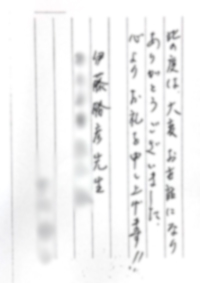 此の度は、大変お世話になり
ありがとうございました。
心よりお礼を申し上げます!!
伊藤勝彦先生